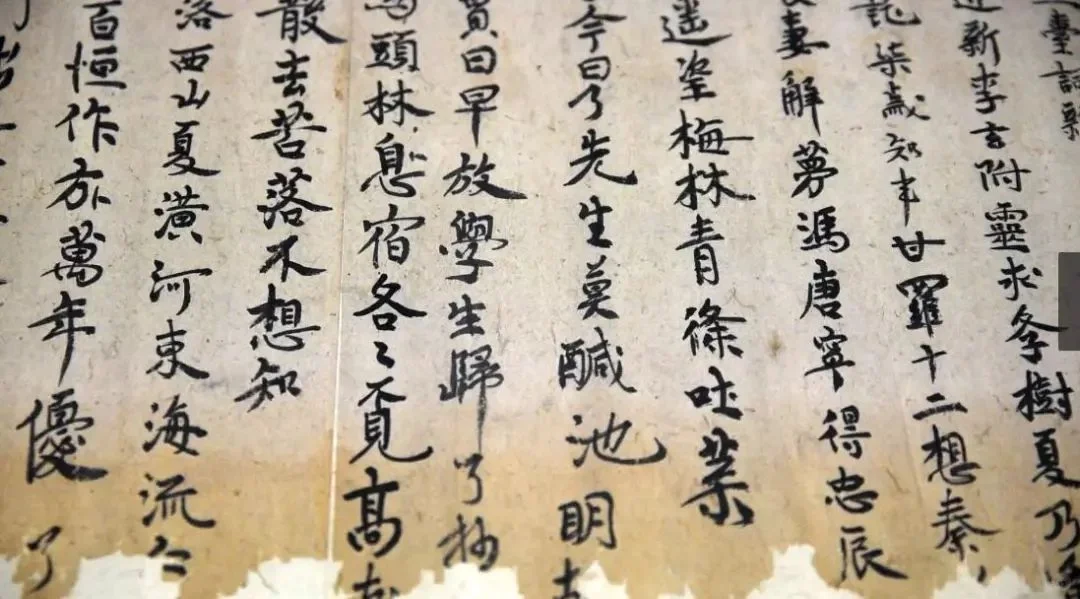 臺詞新
迎新李玄附靈求学樹夏乃
託柒歲知事甘羅十二想秦
妻解夢馮唐寧得忠辰
遥望梅林青條吐葉
今日了先生莫醎池明
賈日早放學生歸了
鳥頭林息宿各〻覓高
散去苦落不想知
落西山夏潢河東海流
百恒作旅萬年優